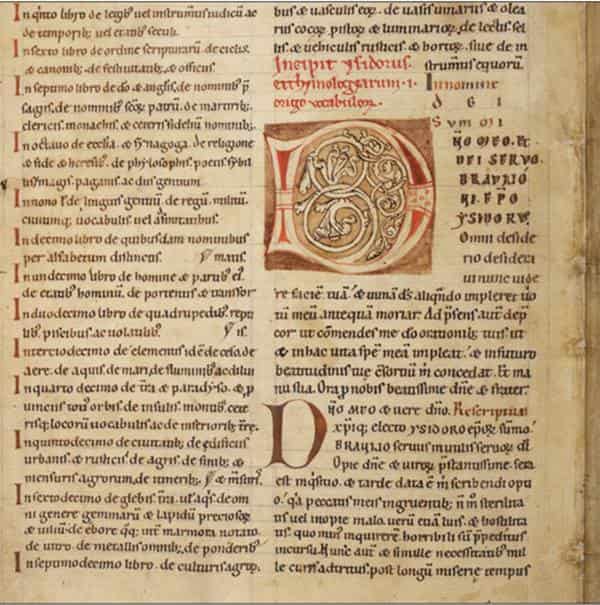 In q̃nto libro de legib; uel instrum̃tis iudicū ac
de temporib; uel etatib; seculi.
In sexto libro de ordine scripturarū de ciclis.
& canonib; de festiuitatib; & officiis.
In septimo libro de dõ & anglis, de nominib; p̃
sagiis, de nominib; scõꝝ patrũ, de martirib;
clericis, monachis, & ceteris fidelibus nominib;
In octauo de eccl̃ia & synagoga, de religione
& fide, & heresib; de phylosophis, poetis, sybil
lis, magis, paganis, ac diis gentium.
In nono l̃. de linguis gentiũ, de regũ, militũ,
ciuiumq; uocabulis uel affinitatibus.
In decimo libro de quibusdam nominibus
per alfabetum distinctis. matis.
In undecimo libro de homine & partib; ei.
de etatib; hominũ, de portentis & transfor
In duodecimo libro de quadrupedib; repti
lib; piscibus, ac uolatilib; is.
In terciodecimo de elementis id ẽ de celo & de
aere, de aquis, de mari, de fluminib; ac diluui
In quarto decimo de tr̃a & paradyso, & p̃
uinciis toti' orbis, de insulis, montib; cete
risq; locorũ uocabulis, ac de inferiorib; tr̃e.
In quintodecimo de ciuitatib; de edificiis
urbanis & rusticis, de agris, de finib; &
mensuris agrorum, de itinerib;
In sextodecimo de glebis
ni genere gemmarũ & lapidũ preciosoꝝ
& uiliũ, de ebore q̃q; int̃ marmora notato,
de uitro, de metallis omnib; de ponderib;
In septimodecimo libro, de culturis agroꝝ.
bus & uasculis eoꝝ, de uasis uinariis & olea
riis, cocoꝝ, pistoꝝ & luminarioꝝ, de lectis, sel
lis, & uehiculis rusticis & hortoꝝ, siue de in
Incipit ysidorus strumẽtis equorũ.
etthimologiarum .i. In nomine
origo uocabuloꝝ. d̃ i
Svm mi
ño meo. et
dei servo
bravlio
ni. epo
ysidorvs.
Omni deside
rio desidera
ui nunc uide
re facie tuã, & utinã d̃s aliqñdo impleret uo
tũ meũ antequam moriar. Ad p̃sens aut̃ dep̃
cor ut cõmendes me dõ orationib; tuis, ut
& in hac uita spẽ meã impleat, & in futuro
beatitudinis tue c̃sortiũ m̃ concedat. Et ma
nu sua. Ora p nobis beatissime dñe & frater.
Dño meo & uere dño. Rescriptũ
xp̃iq; electo ysidoro ep̃oꝝ sũmo.
Bravlio seruus inutilis seruoꝝ d̃i.
Opie dñe & uiroꝝ p̃stantissime. sera
est inq̃sitio, & tarde data ẽ m̃ scribendi opor
o. q̃a peccatis meis ingruentib; ñ m̃ sterilita
tis uel inopie malo, uerũ etiã luis, & hostilita
tis, quo min' inquirerẽ, horribili sũ p̃peditus
incursu. Nunc aut̃ & si mille necessitatib; mil
le curis adtritus, post longũ miserie tempus